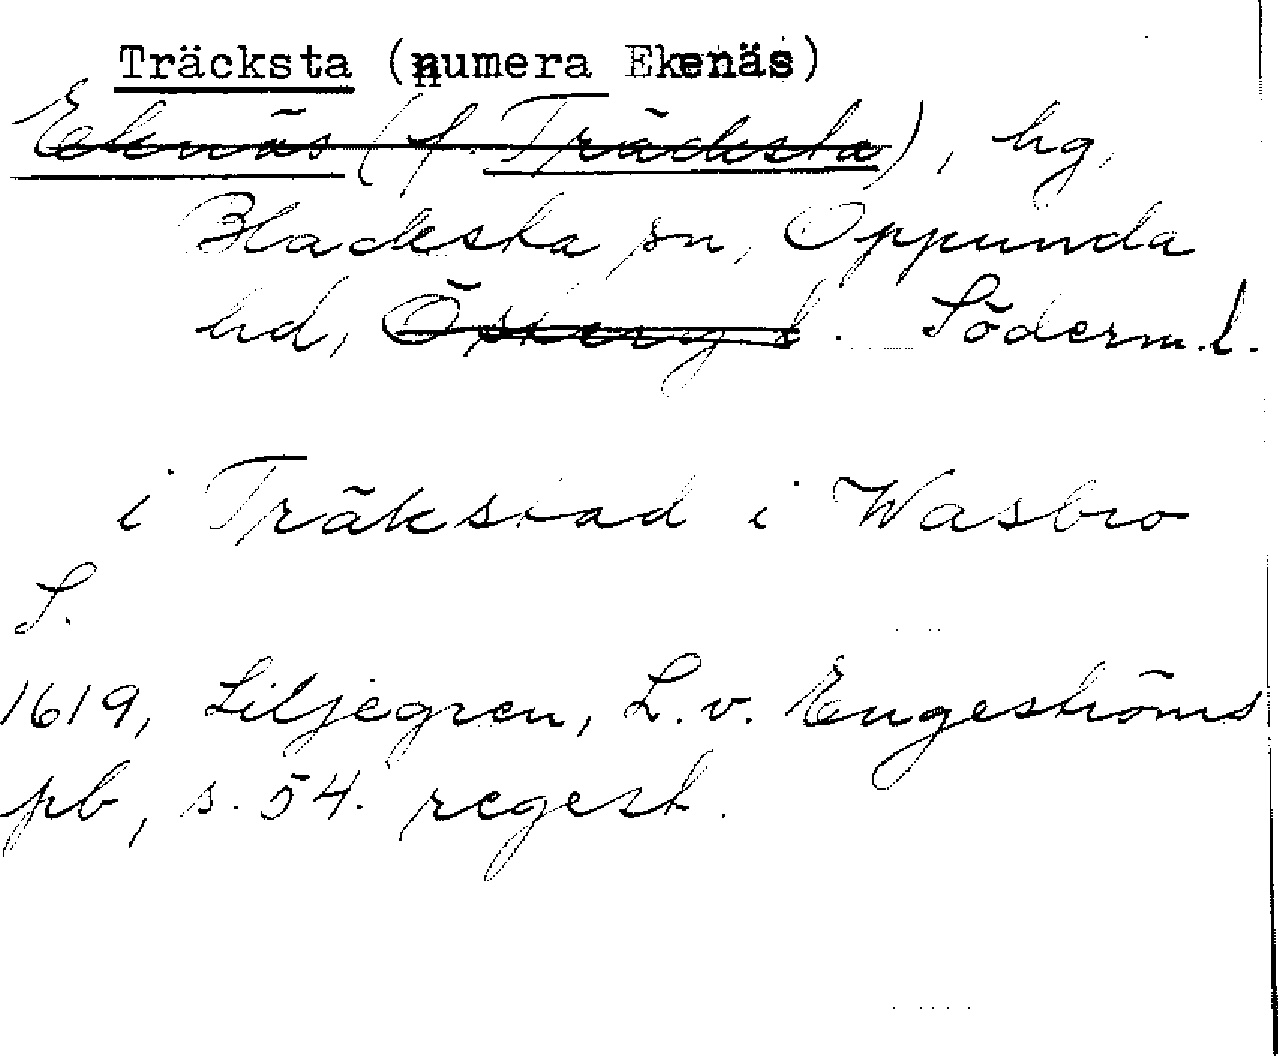 Träcksta (numera Ekenäs)
Ekenäs (f. Träcksta), hg,
Blacksta sn, Oppunda
hd, Österg.l. Söderm.l.
i Träkstad i Wasbro
S.
1619, Liljegren, L.v. Engeströms
pb, s. 54. regest.